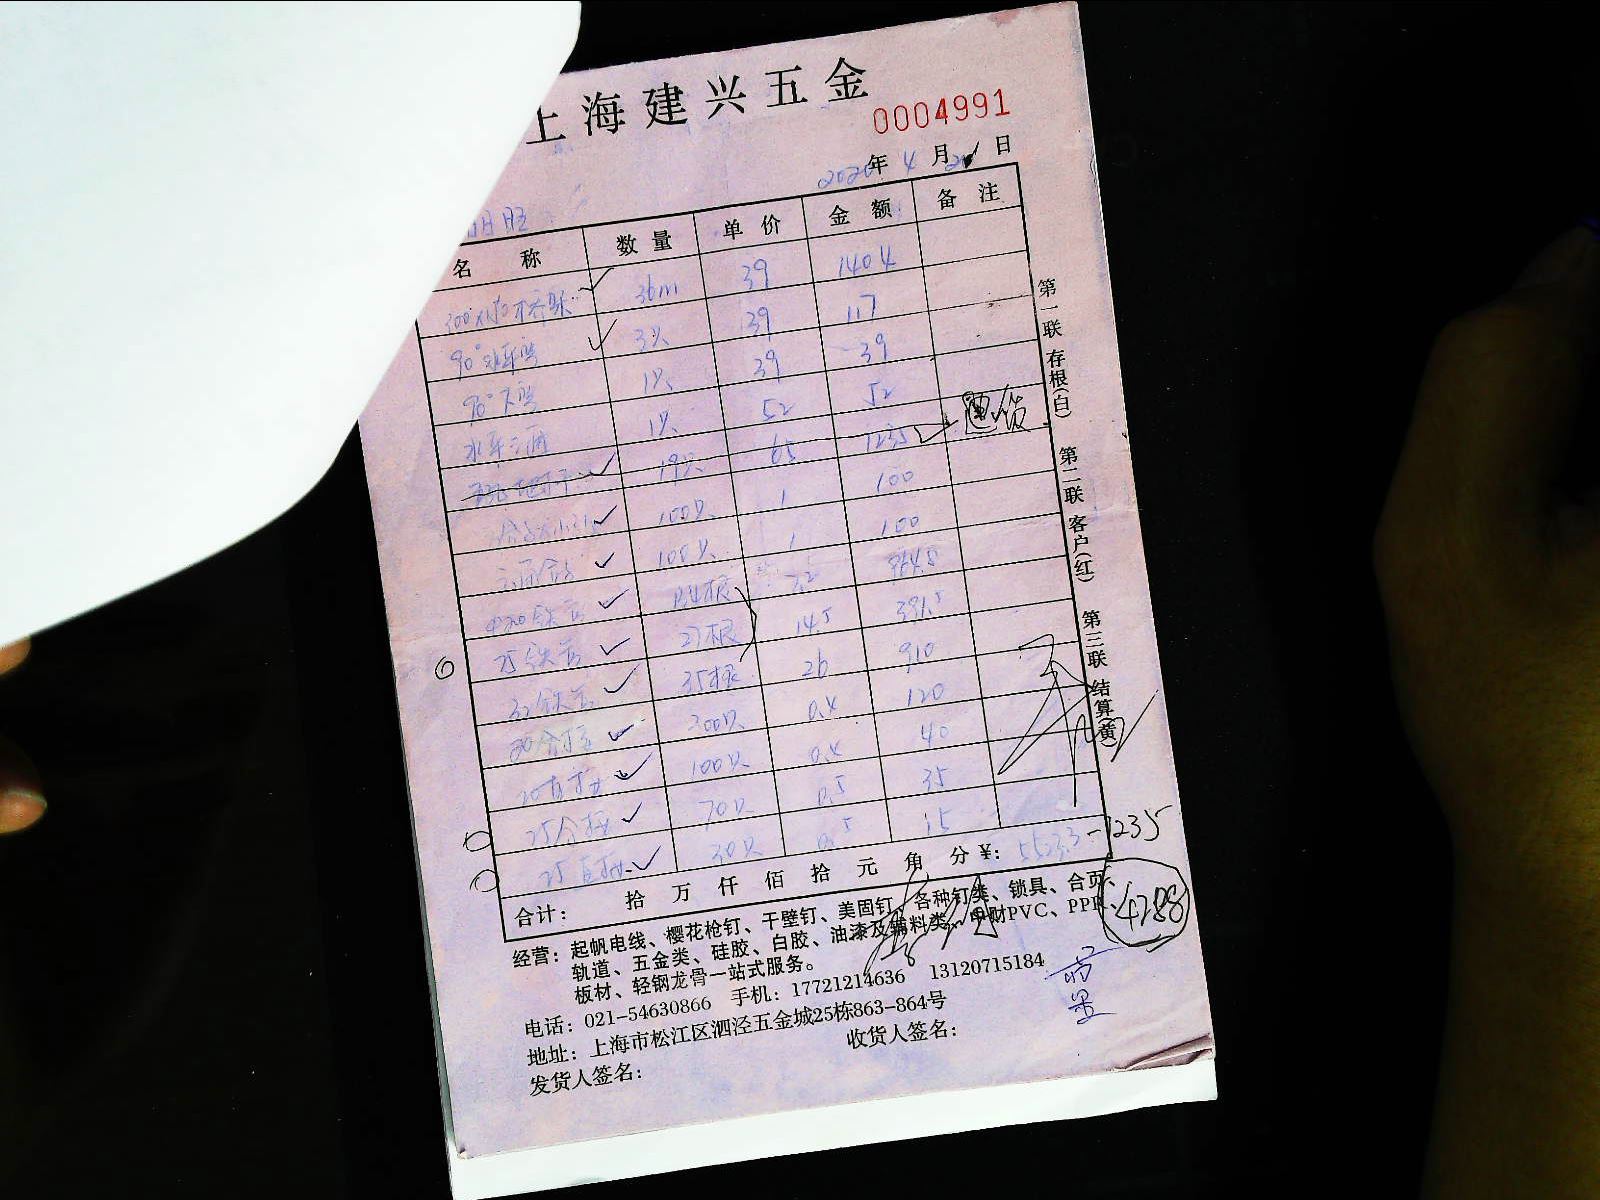 上海建兴五金
0004991
2020年 4月 21日
名 称 数 量 单 价 金 额 备 注
300×150桥架 36m 39 1404
90°水平弯 3只 39 117
90°下弯 1只 39 39
水平三通 1只 52 52
19只 65 1235 退货
100只 1 100
100只 1 100
Φ20铁管 7.2 964.8
25铁管 27根 14.5 391.5
32铁管 35根 26 910
300只 0.4 120
20直接 100只 0.4 40
70只 0.5 35
25直接 30只 0.5 15
合计: 拾 万 仟 佰 拾 元 角 分 ¥: 5523.3 -1235
4288
第一联 存根(白) 第二联 客户(红) 第三联 结算(黄)
经营: 起帆电线、樱花枪钉、干壁钉、美固钉、各种钉类、锁具、合页、
轨道、五金类、硅胶、白胶、油漆及辅料类、中财PVC、PPR、
板材、轻钢龙骨一站式服务。
电话: 021-54630866 手机: 17721214636 13120715184
地址: 上海市松江区泗泾五金城25栋863-864号
发货人签名: 收货人签名: